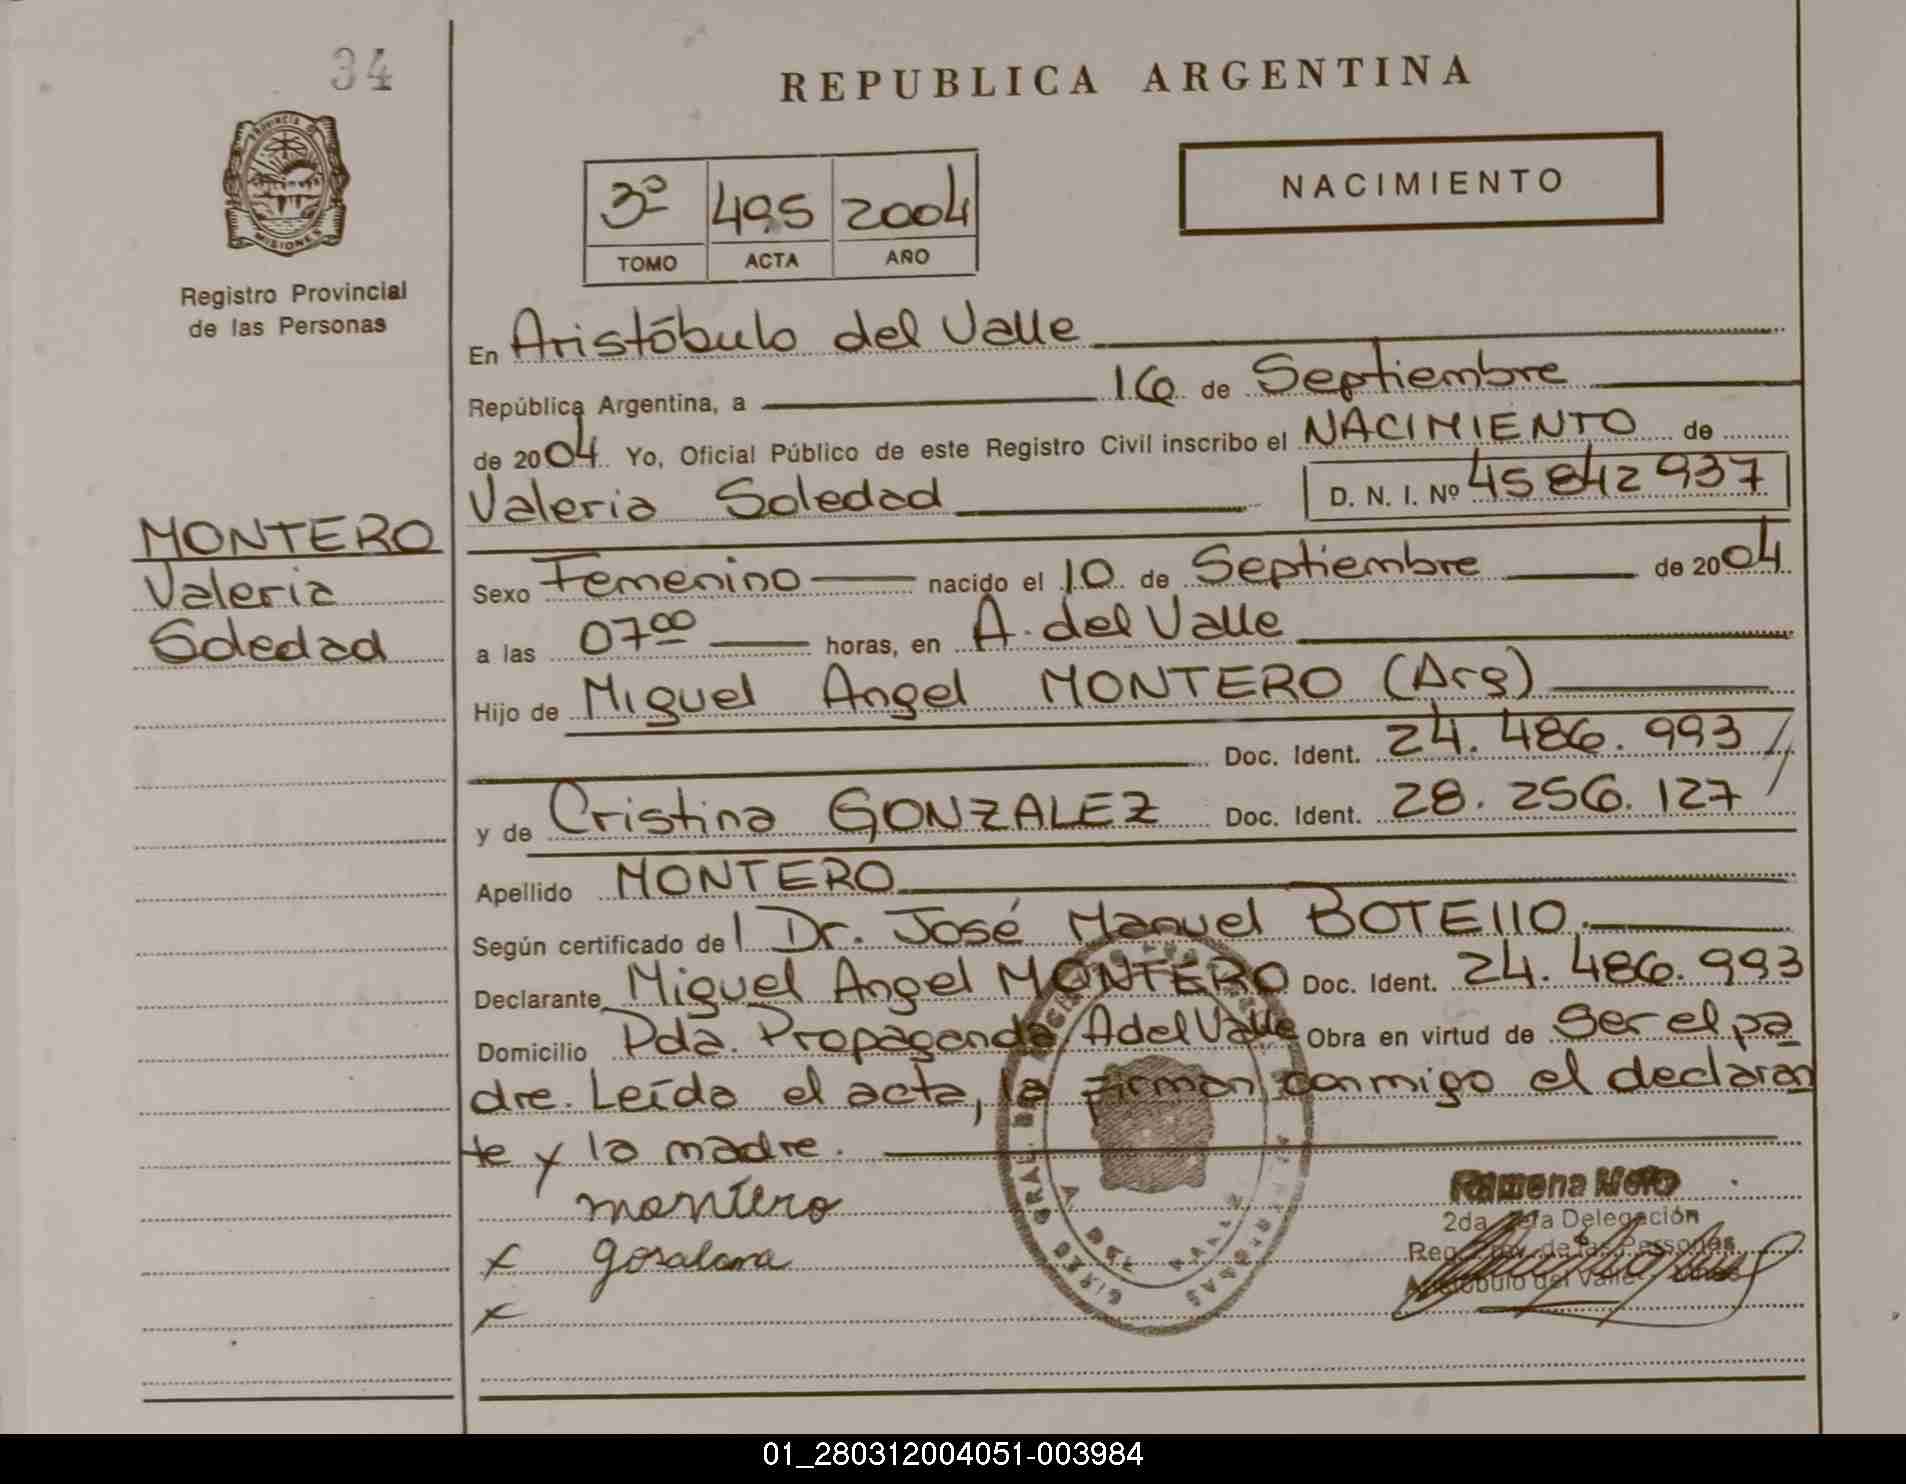 34
REPUBLICA ARGENTINA
PROVINCIA DE
MISIONES
Registro Provincial
de las Personas
3º 495 2004
TOMO ACTA AÑO
NACIMIENTO
En Aristóbulo del Valle
República Argentina, a 16 de Septiembre
de 2004 Yo, Oficial Público de este Registro Civil inscribo el NACIMIENTO de
Valeria Soledad D. N. I. Nº 45842937
MONTERO
Valeria
Soledad
Sexo Femenino nacido el 10 de Septiembre de 2004
a las 07ºº horas, en A. del Valle
Hijo de Miguel Angel MONTERO (Arg)
Doc. Ident. 24.486.993
y de Cristina GONZALEZ Doc. Ident. 28.256.127
Apellido MONTERO
Según certificado de l Dr. José Manuel BOTELLO.
Declarante Miguel Angel MONTERO Doc. Ident. 24.486.993
Domicilio Pda. Propaganda AdelValle Obra en virtud de ser el pa
dre. Leída el acta, la firman conmigo el declaran
te y la madre.
montero
x gosalana
x
Ramona
2da. Jefa Delegación
Reg. Prov. de las Personas
Aristóbulo del Valle
01_280312004051-003984